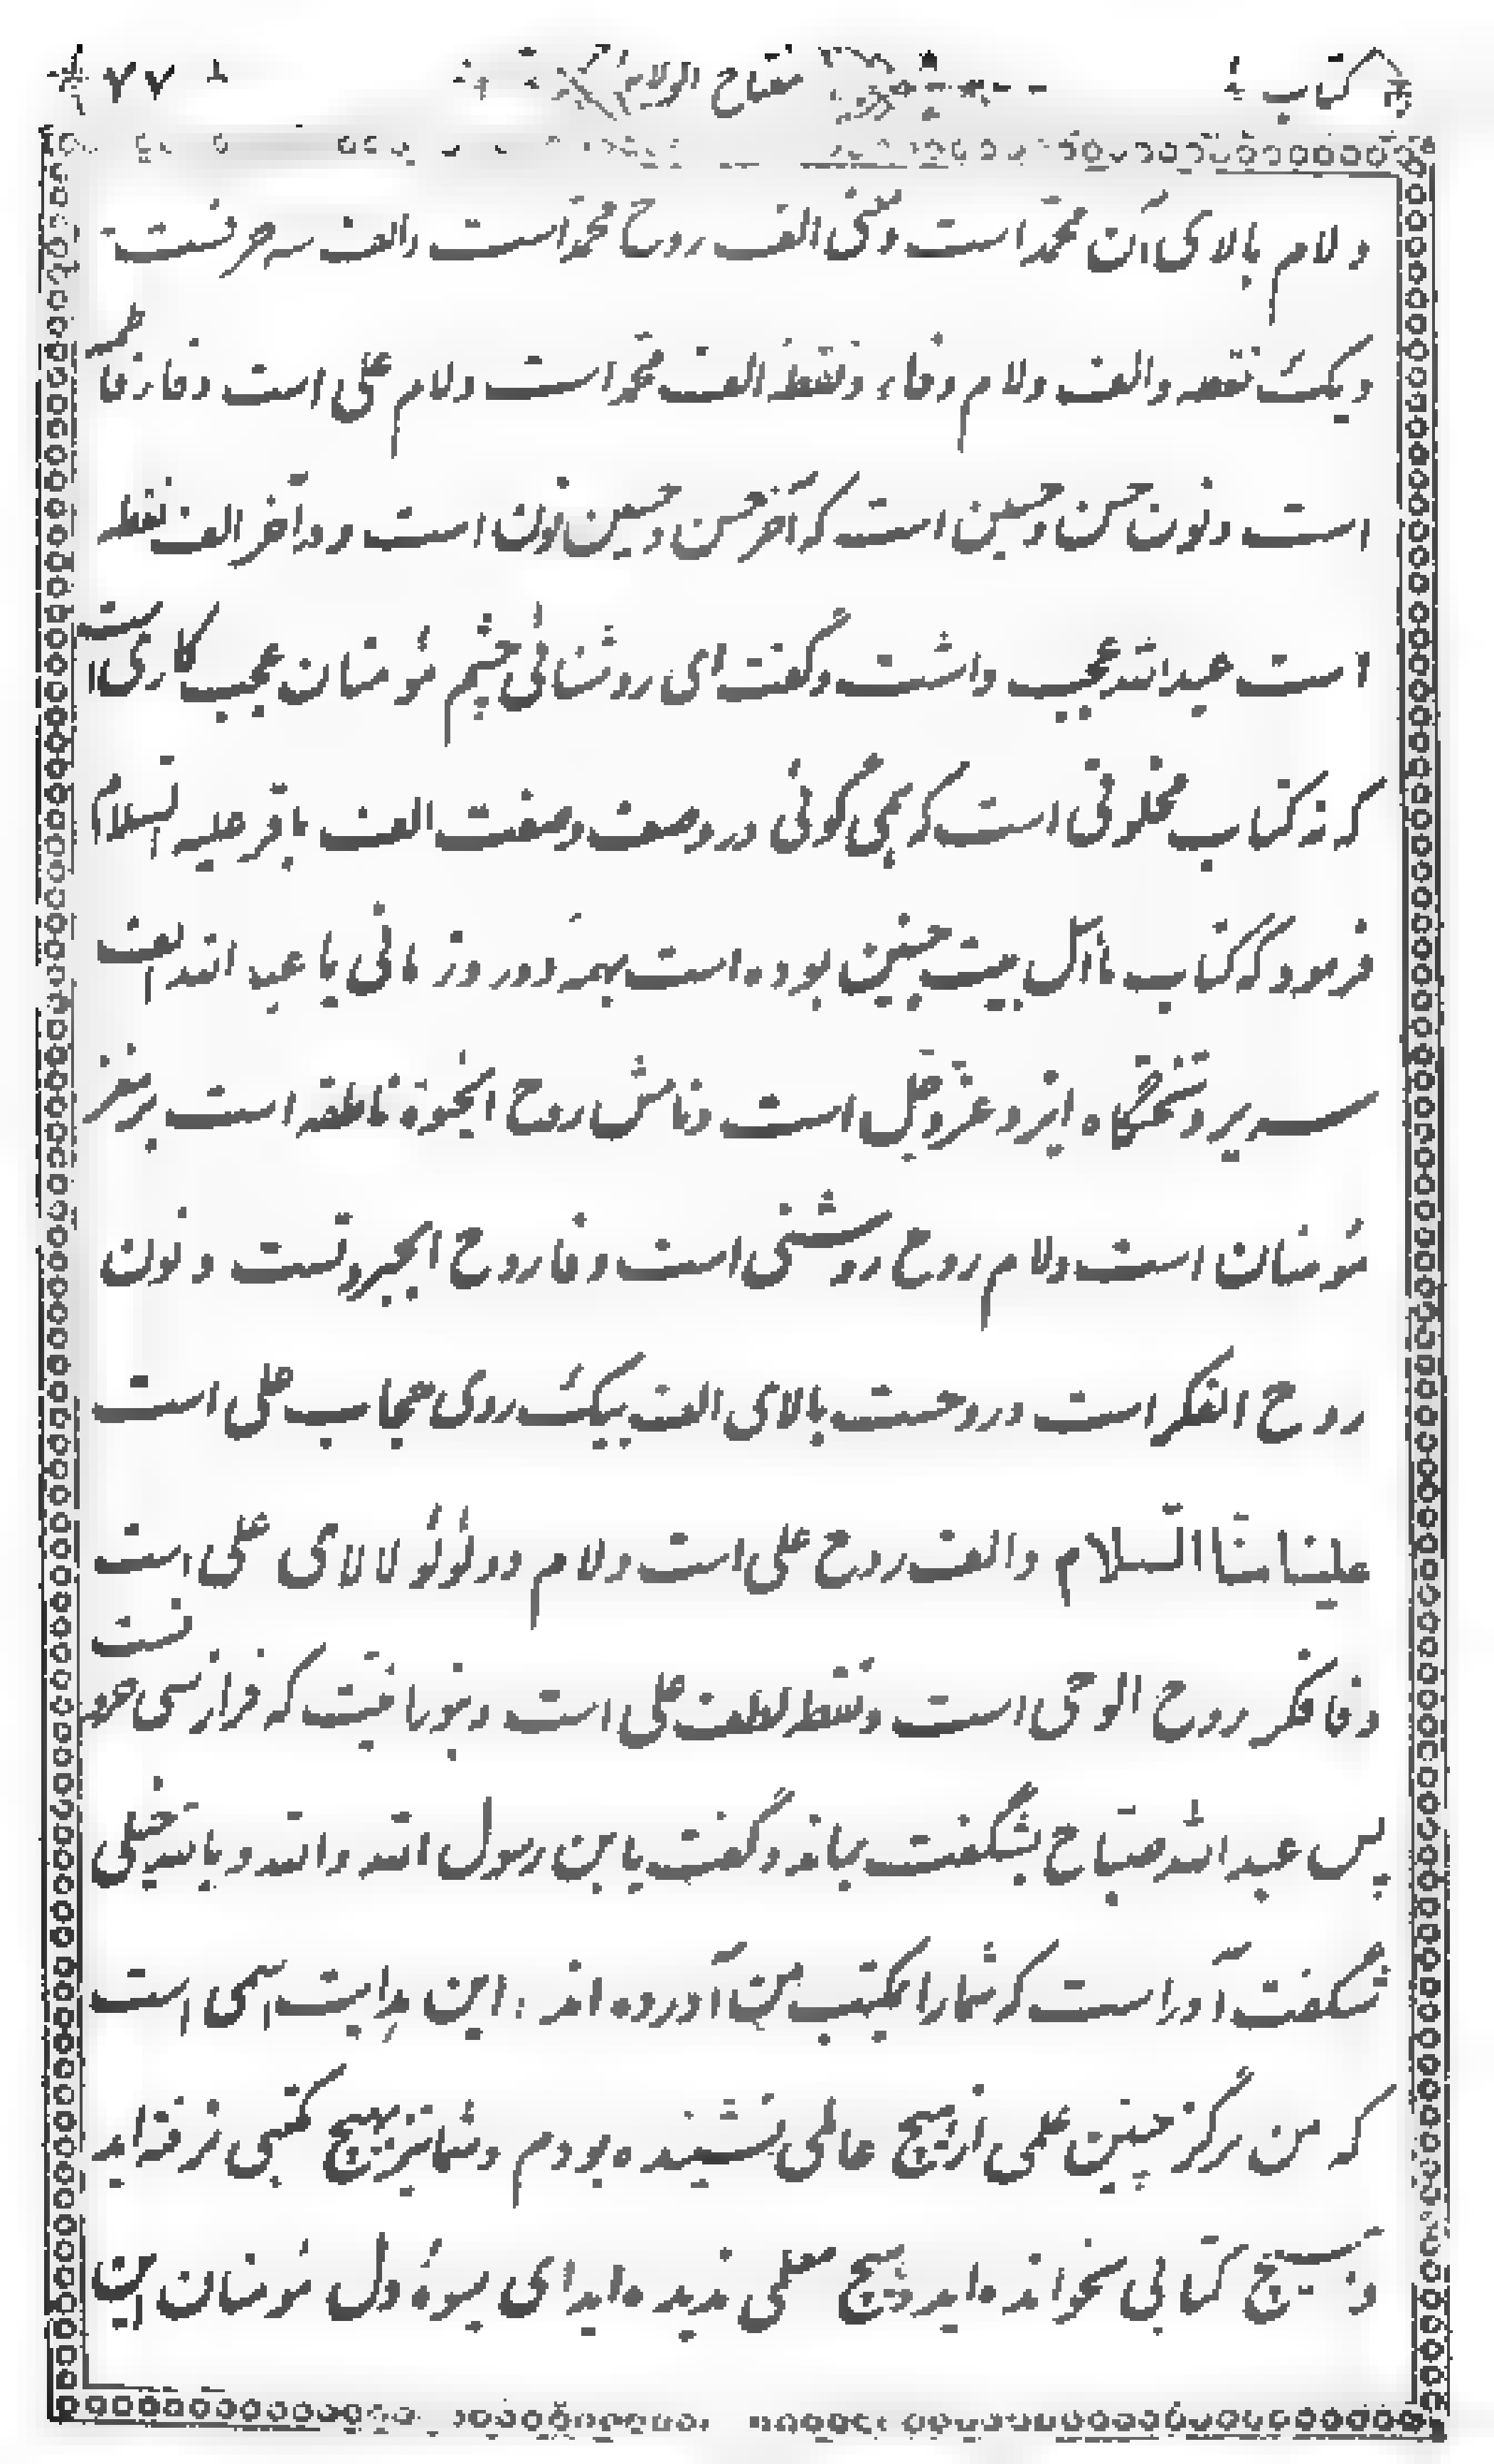 کتاب مفتاح الولام ۷۷
و لام بالای آن محمّد است و معنی الف روح محمّد است والف سه حرفست
ویک نقطه والف ولام وفاء ونقطهٔ الف محمد است ولام علی است وفاء فاطمه
است ونون حسن وحسین است که آخر حسن وحسین نون است و در آخر الف نقطه
است عبدالله عجب داشت وگفت ای روشنائی چشم مؤمنان عجب کاری است
که نه کتاب مخلوقی است که همی گوئی در وصف وصفت الف باقر علیه السلام
فرمود که کتاب ما اهل بیت چنین بوده است بهمه دور وزمانی یا عبدالله الف
سریر وتختگاه ایزد عزّوجلّ است و نامش روح الحیوة ناطقه است بر مغز
مؤمنان است ولام روح روشنی است وفا روح الجبروتست ونون
روح الفکر است و روحست بالای الف بیک روی حجاب علی است
علینا منّا السّلام والف روح علی است ولام دو لؤلؤ لالای علی است
وفا فکر روح الوحی است ونقطه لطف علی است که فراز سی حرفست
پس عبدالله صبّاح بشگفت بماند وگفت یا بن رسول الله والله وبالله خیلی
شگفت آور است که شما را بمکتب من آورده اند : این بدایت اسمی است
که من هرگز چنین علمی از هیچ عالمی نشنیده بودم وشما نیز بهیچ مکتبی نرفته اید
وهیچ کتابی نخوانده اید وهیچ معلمی ندیده اید ای میوهٔ دل مؤمنان این